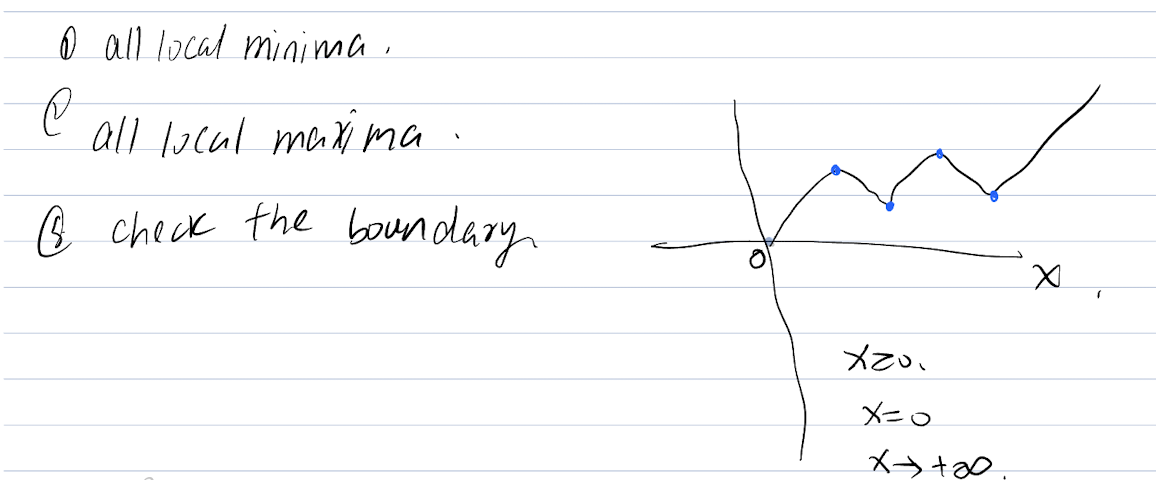 ① all local minima.
② all local maxima.
③ check the boundary
0
X
x≥0.
x=0
x→+∞.